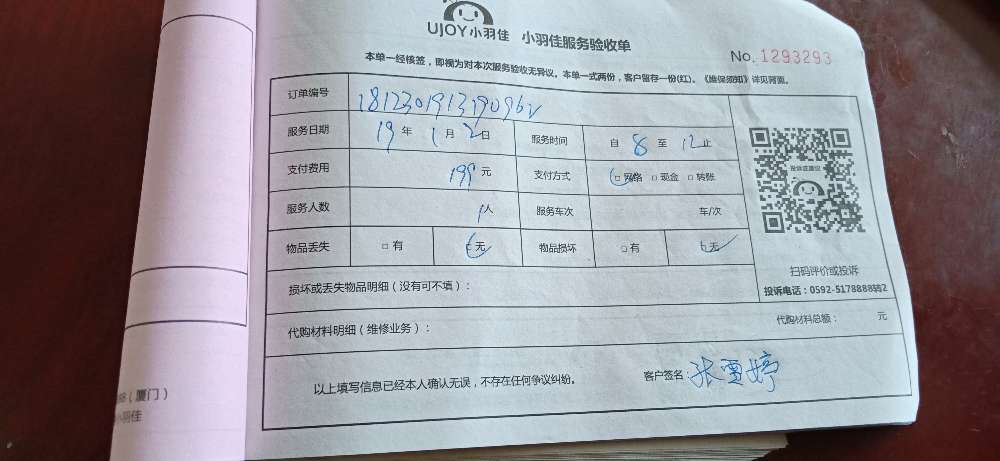 UJOY小羽佳 小羽佳服务验收单
No. 1293293
本单一经核签，即视为对本次服务验收无异议。本单一式两份，客户留存一份(红)。《维保须知》详见背面。
订单编号
服务日期 19 年 1 月 2 日 服务时间 自 8 至 12 止
支付费用 199 元 支付方式 □ 网络 □ 现金 □ 转账
服务人数 1 人 服务车次 车/次
物品丢失 □ 有 无 物品损坏 □ 有 无
扫码评价或投诉
损坏或丢失物品明细（没有可不填）：
代购材料明细（维修业务）： 代购材料总额： 元
以上填写信息已经本人确认无误，不存在任何争议纠纷。 客户签名：
（厦门）
小羽佳